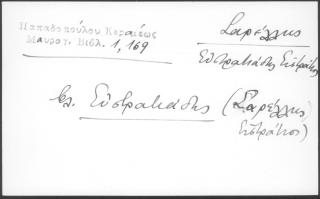 Παπαδοπούλου Κεραμέως
Μαυρογ. Βιβλ. 1, 169
Σαρέλλης
Εὐστρατιάδης Εὐστράτιος
βλ. Εὐστρατιάδης (Σαρέλλης
Εὐστράτιος)